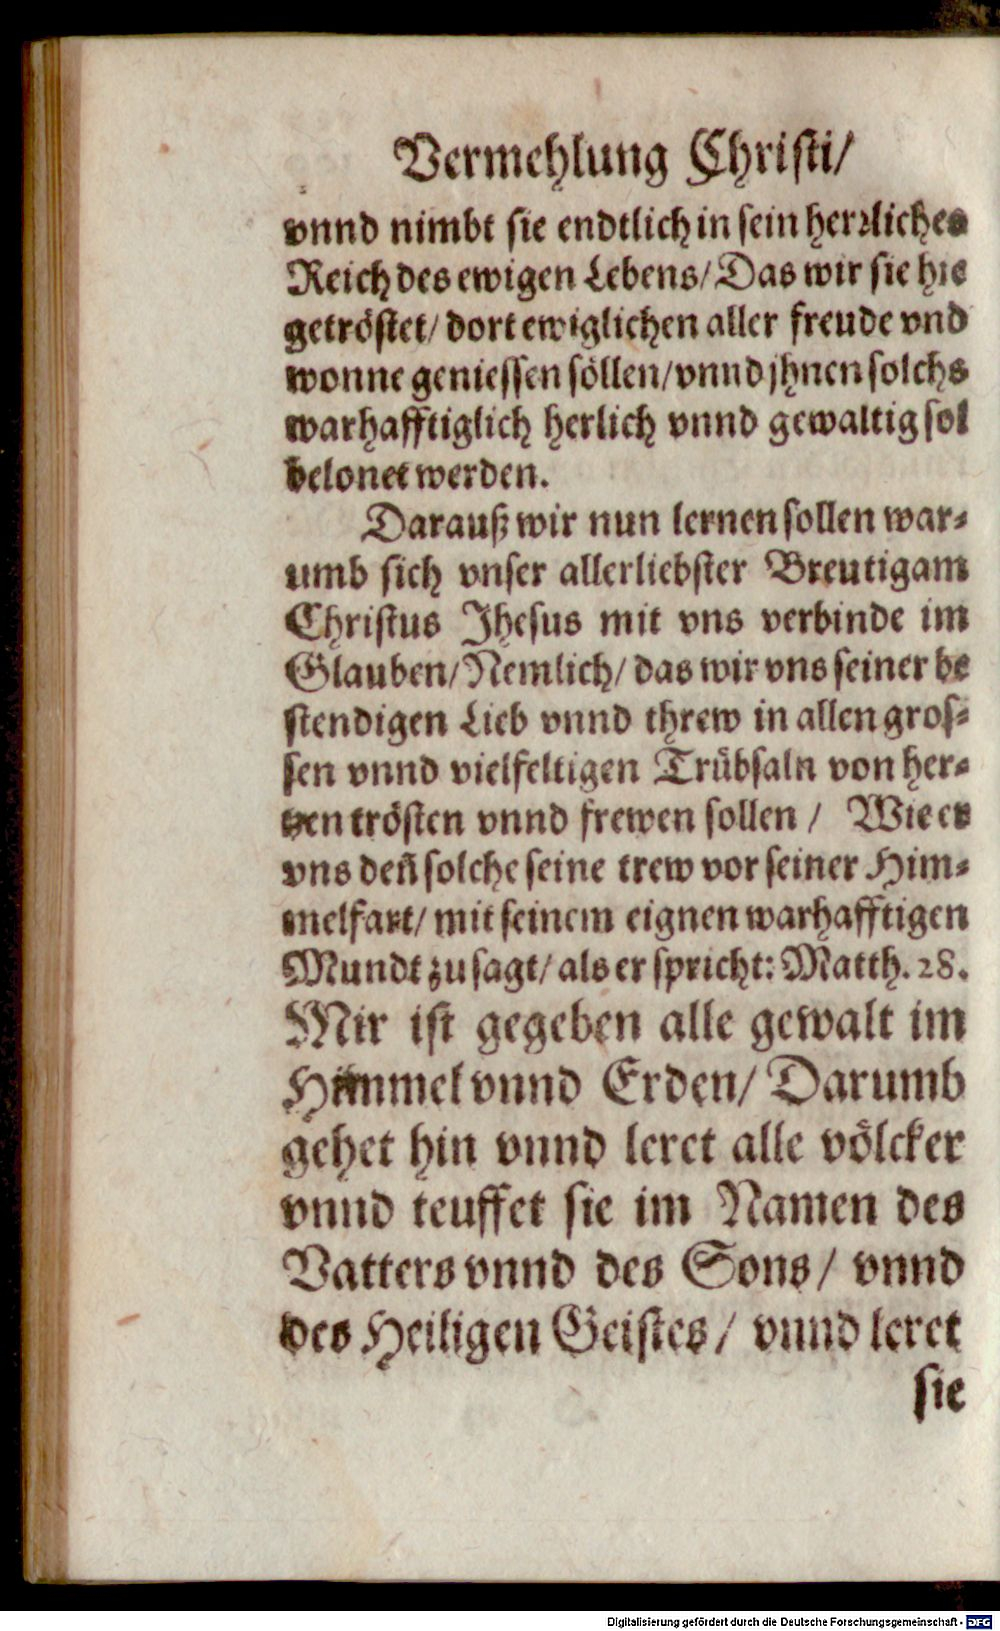 Vermehlung Christi/
vnnd nimbt sie endtlich in sein herꝛliches
Reich des ewigen Lebens/ Das wir sie hie
getröstet/ dort ewiglichen aller freude vnd
wonne geniessen söllen/ vnnd jhnen solchs
warhafftiglich herlich vnnd gewaltig sol
belonet werden.
Darauß wir nun lernen sollen war⸗
umb sich vnser allerliebster Breutigam
Christus Jhesus mit vns verbinde im
Glauben/ Nemlich/ das wir vns seiner be
stendigen Lieb vnnd threw in allen gros⸗
sen vnnd vielfeltigen Trübsaln von her⸗
tzen trösten vnnd frewen sollen / Wie er
vns deñ solche seine trew vor seiner Him⸗
melfart/ mit seinem eignen warhafftigen
Mundt zu sagt/ als er spricht: Matth. 28.
Mir ist gegeben alle gewalt im
Himmel vnnd Erden/ Darumb
gehet hin vnnd leret alle völcker
vnnd teuffet sie im Namen des
Vatters vnnd des Sons/ vnnd
des Heiligen Geistes/ vnnd leret
sie
Digitalisierung gefördert durch die Deutsche Forschungsgemeinschaft - DFG